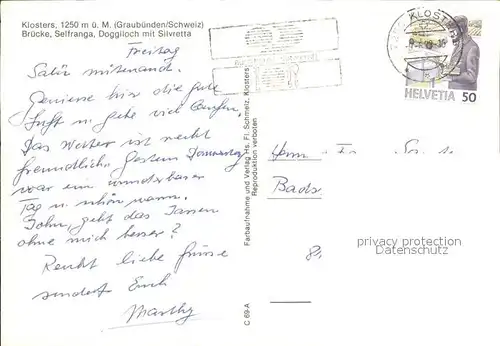 Klosters, 1250 m ü. M. (Graubünden/Schweiz)
Brücke, Selfranga, Doggiloch mit Silvretta
Freitag
Salü mitenand.
Geniesse hier die gute
Luft u. gehe viel laufen.
Das Wetter ist recht
freundlich. Gestern Donnerstag
war ein wunderbarer
Tag u. schön warm.
John, geht das Jassen
ohne mich besser?
Recht liebe Grüsse
sendet Euch
Marthy
Farbaufnahme und Verlag Hs. Fl. Schmelz, Klosters
Reproduktion verboten
C 69-A
KLOSTERS
HELVETIA 50
Herrn
Bads
privacy protection
Datenschutz